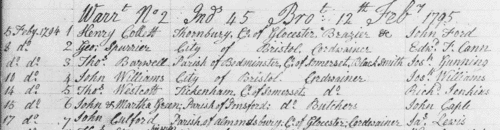 Warrt. No 2 Ind 45 Brot. 12th Feby 1795
5 Feby. 1794 1 Henry Collett Thornbury, C. of Glocester Brazier &c John Ford
8 do. 2 Geo. Spurrier City of Bristol Cordwainer Edwd. T. Cann
do do. 3 Thos. Barwell Parish of Bedminster, C. of Somerset, Blacksmith Jos. Gunning
10 do. 4 John Williams City of Bristol Cordwainer Jos. Williams
14 do 5 Thos. Westcott Tickenham, C. of Somerset do. Richd. Jenkins
15 do 6 John & Martha Green, Parish of do. Butchers John Caple
17 do. 7 John Parish of Almondsbury, C. of Glocester, Cordwainer Jas. Lewis